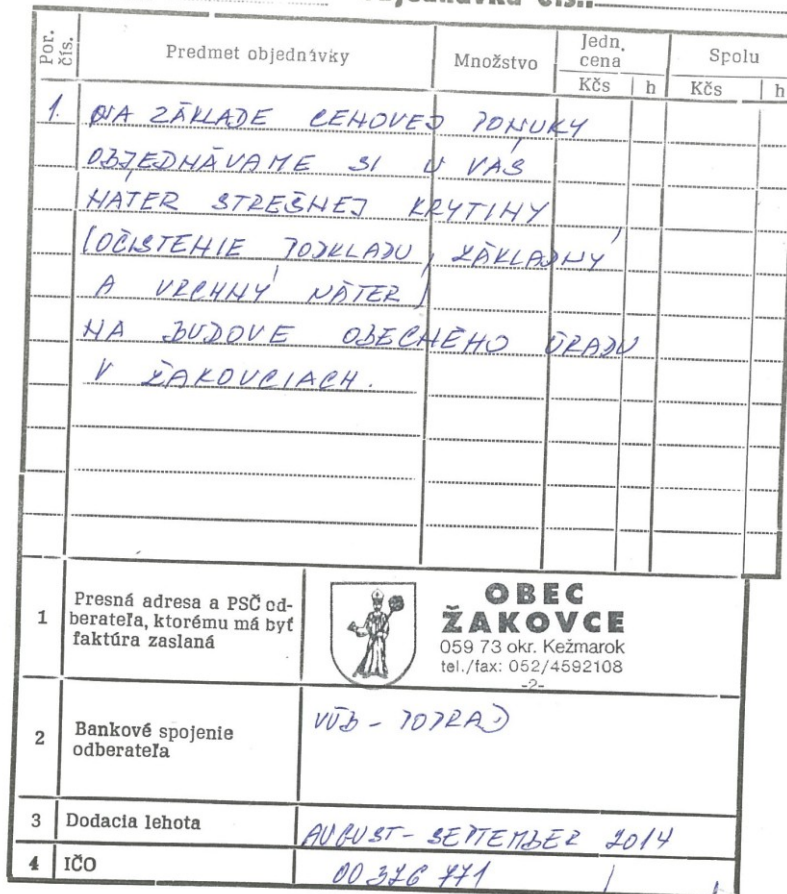 Por. čís. Predmet objednávky Množstvo Jedn. cena Spolu
Kčs h Kčs h
1. NA ZÁKLADE CENOVEJ PONUKY
OBJEDNÁVAME SI U VÁS
NÁTER STREŠNEJ KRYTINY
(OČISTENIE PODKLADU, ZÁKLADNÝ
A VRCHNÝ NÁTER)
NA BUDOVE OBECNÉHO ÚRADU
V ŽAKOVCIACH.
1 Presná adresa a PSČ od-
berateľa, ktorému má byť
faktúra zaslaná
OBEC
ŽAKOVCE
059 73 okr. Kežmarok
tel./fax: 052/4592108
-2-
2 Bankové spojenie
odberateľa
VÚB - POPRAD
3 Dodacia lehota AUGUST - SEPTEMBER 2014
4 IČO 00 326 771